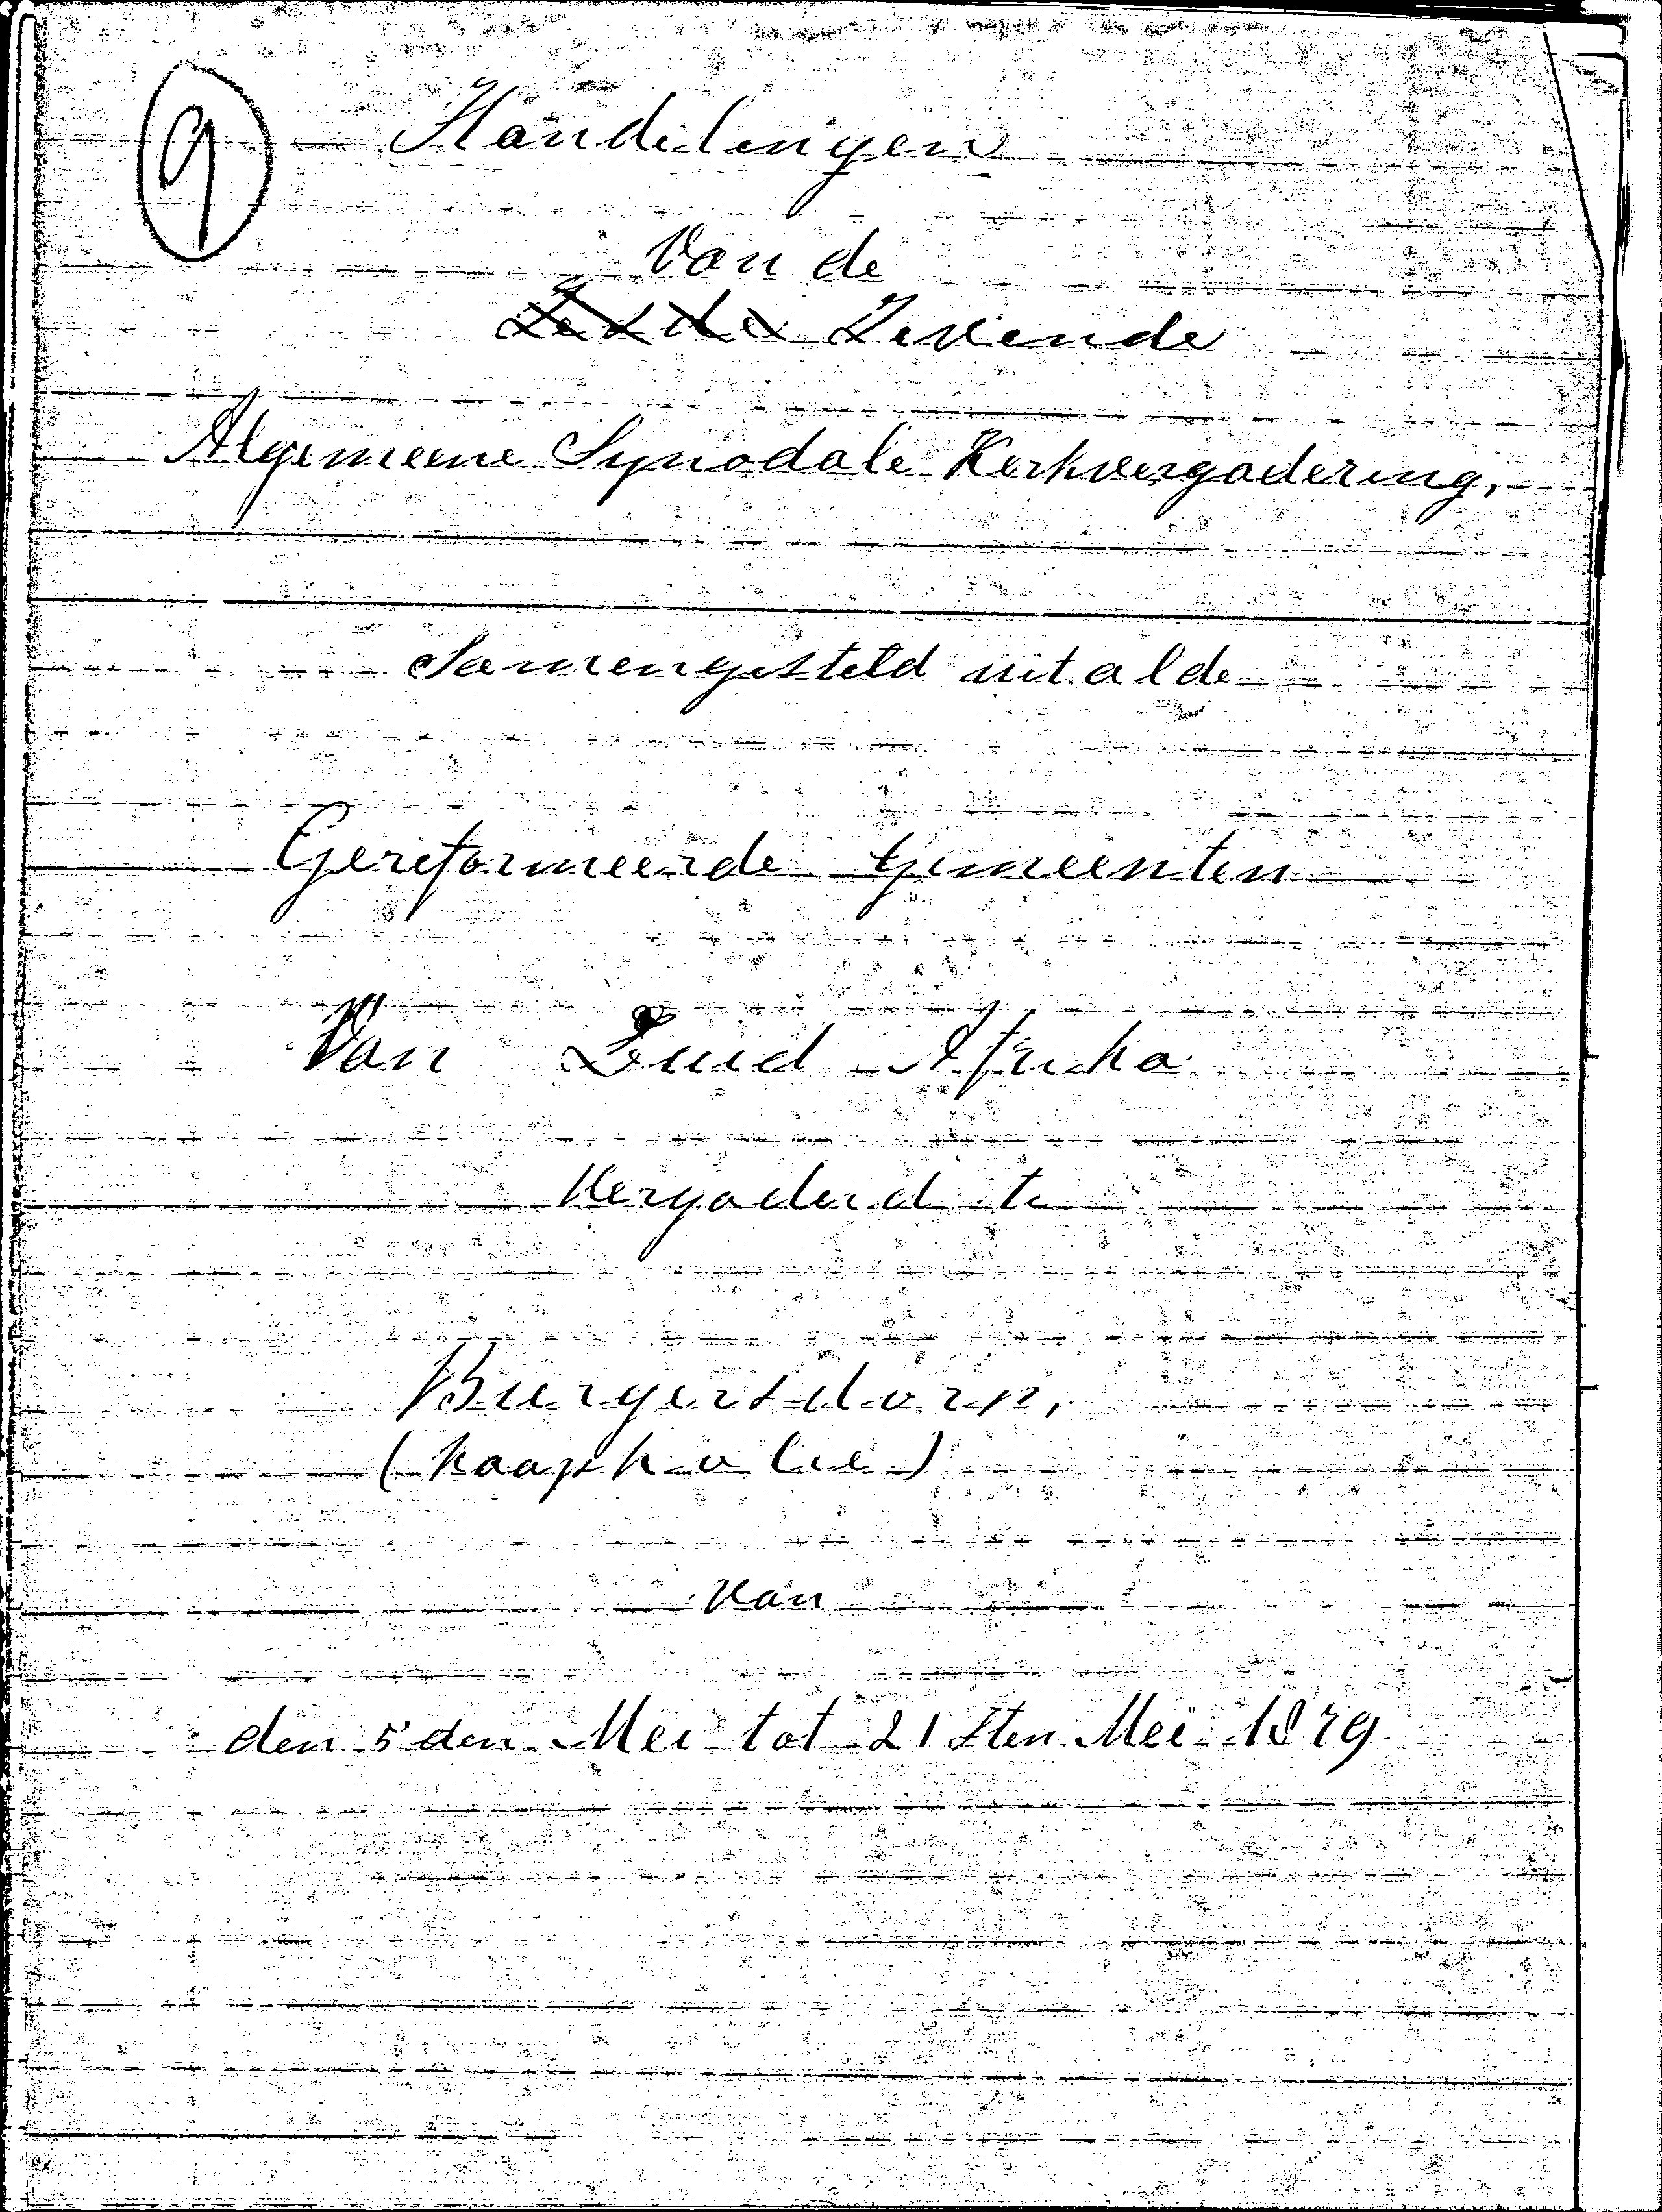 9
Handelingen
Van de
Zesde Zevende
Algemeene Synodale Kerkvergadering,
Samengesteld uit al de
Gereformeerde Gemeenten
Van Zuid Afrika
Vergaderd te
Burgersdorp,
(Kaapkolie)
Van
den 5den Mei tot 21sten Mei 1879